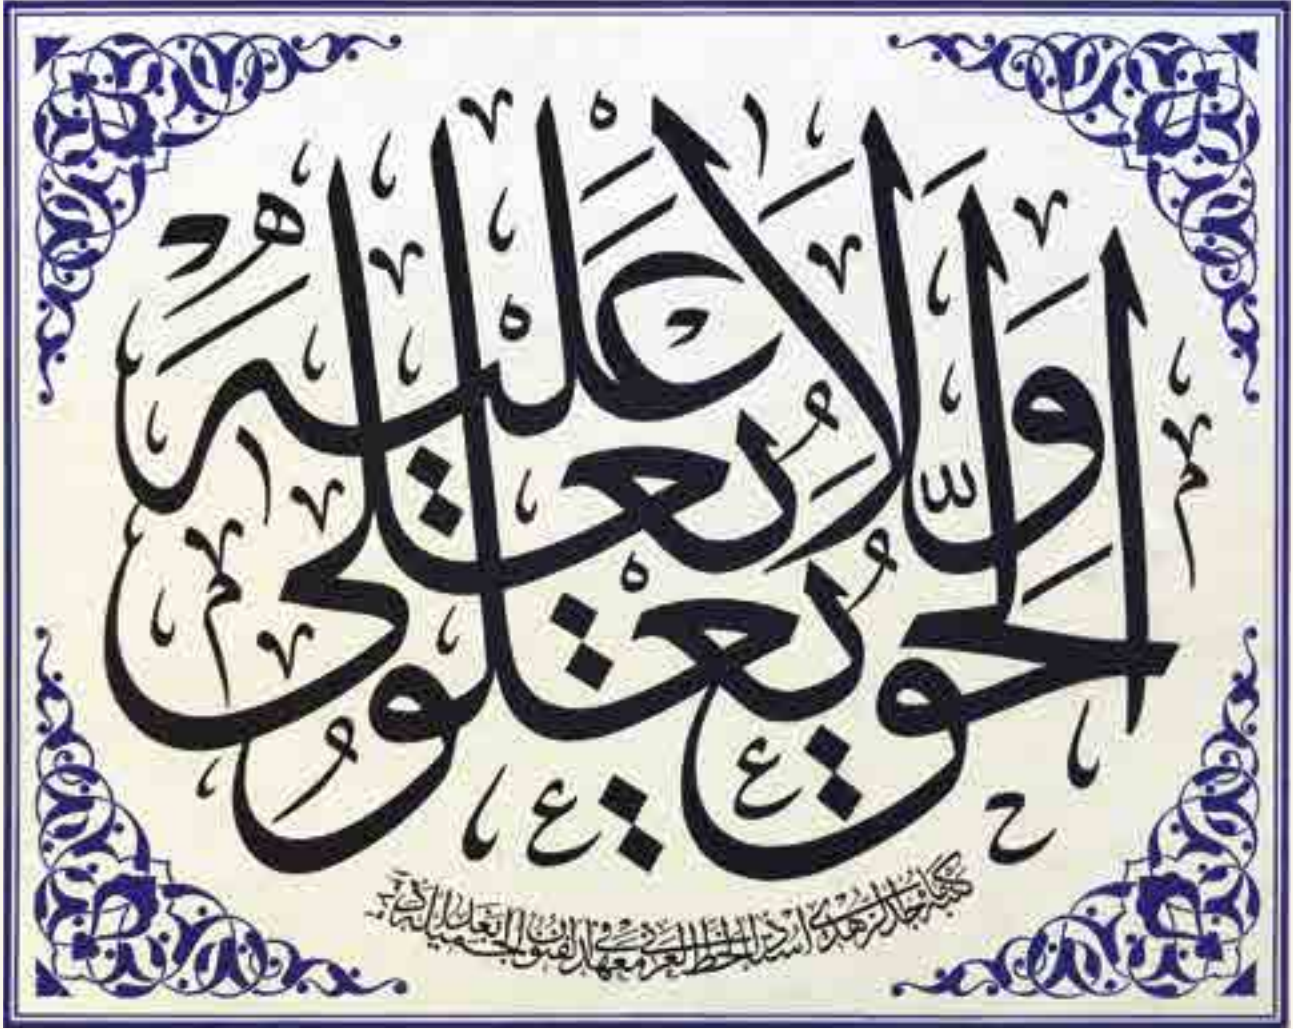 الحَقُّ يَعْلُو وَلَا يُعْلَى عَلَيْهِ
كتبه خالد الزهدي استاذ الخط العربي في معهد الفنون الجميلة بغداد